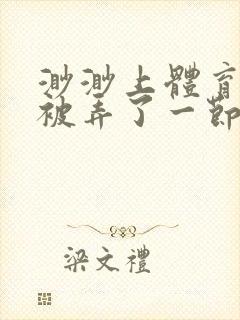 渺渺上體育
被弄了一節
梁文禮